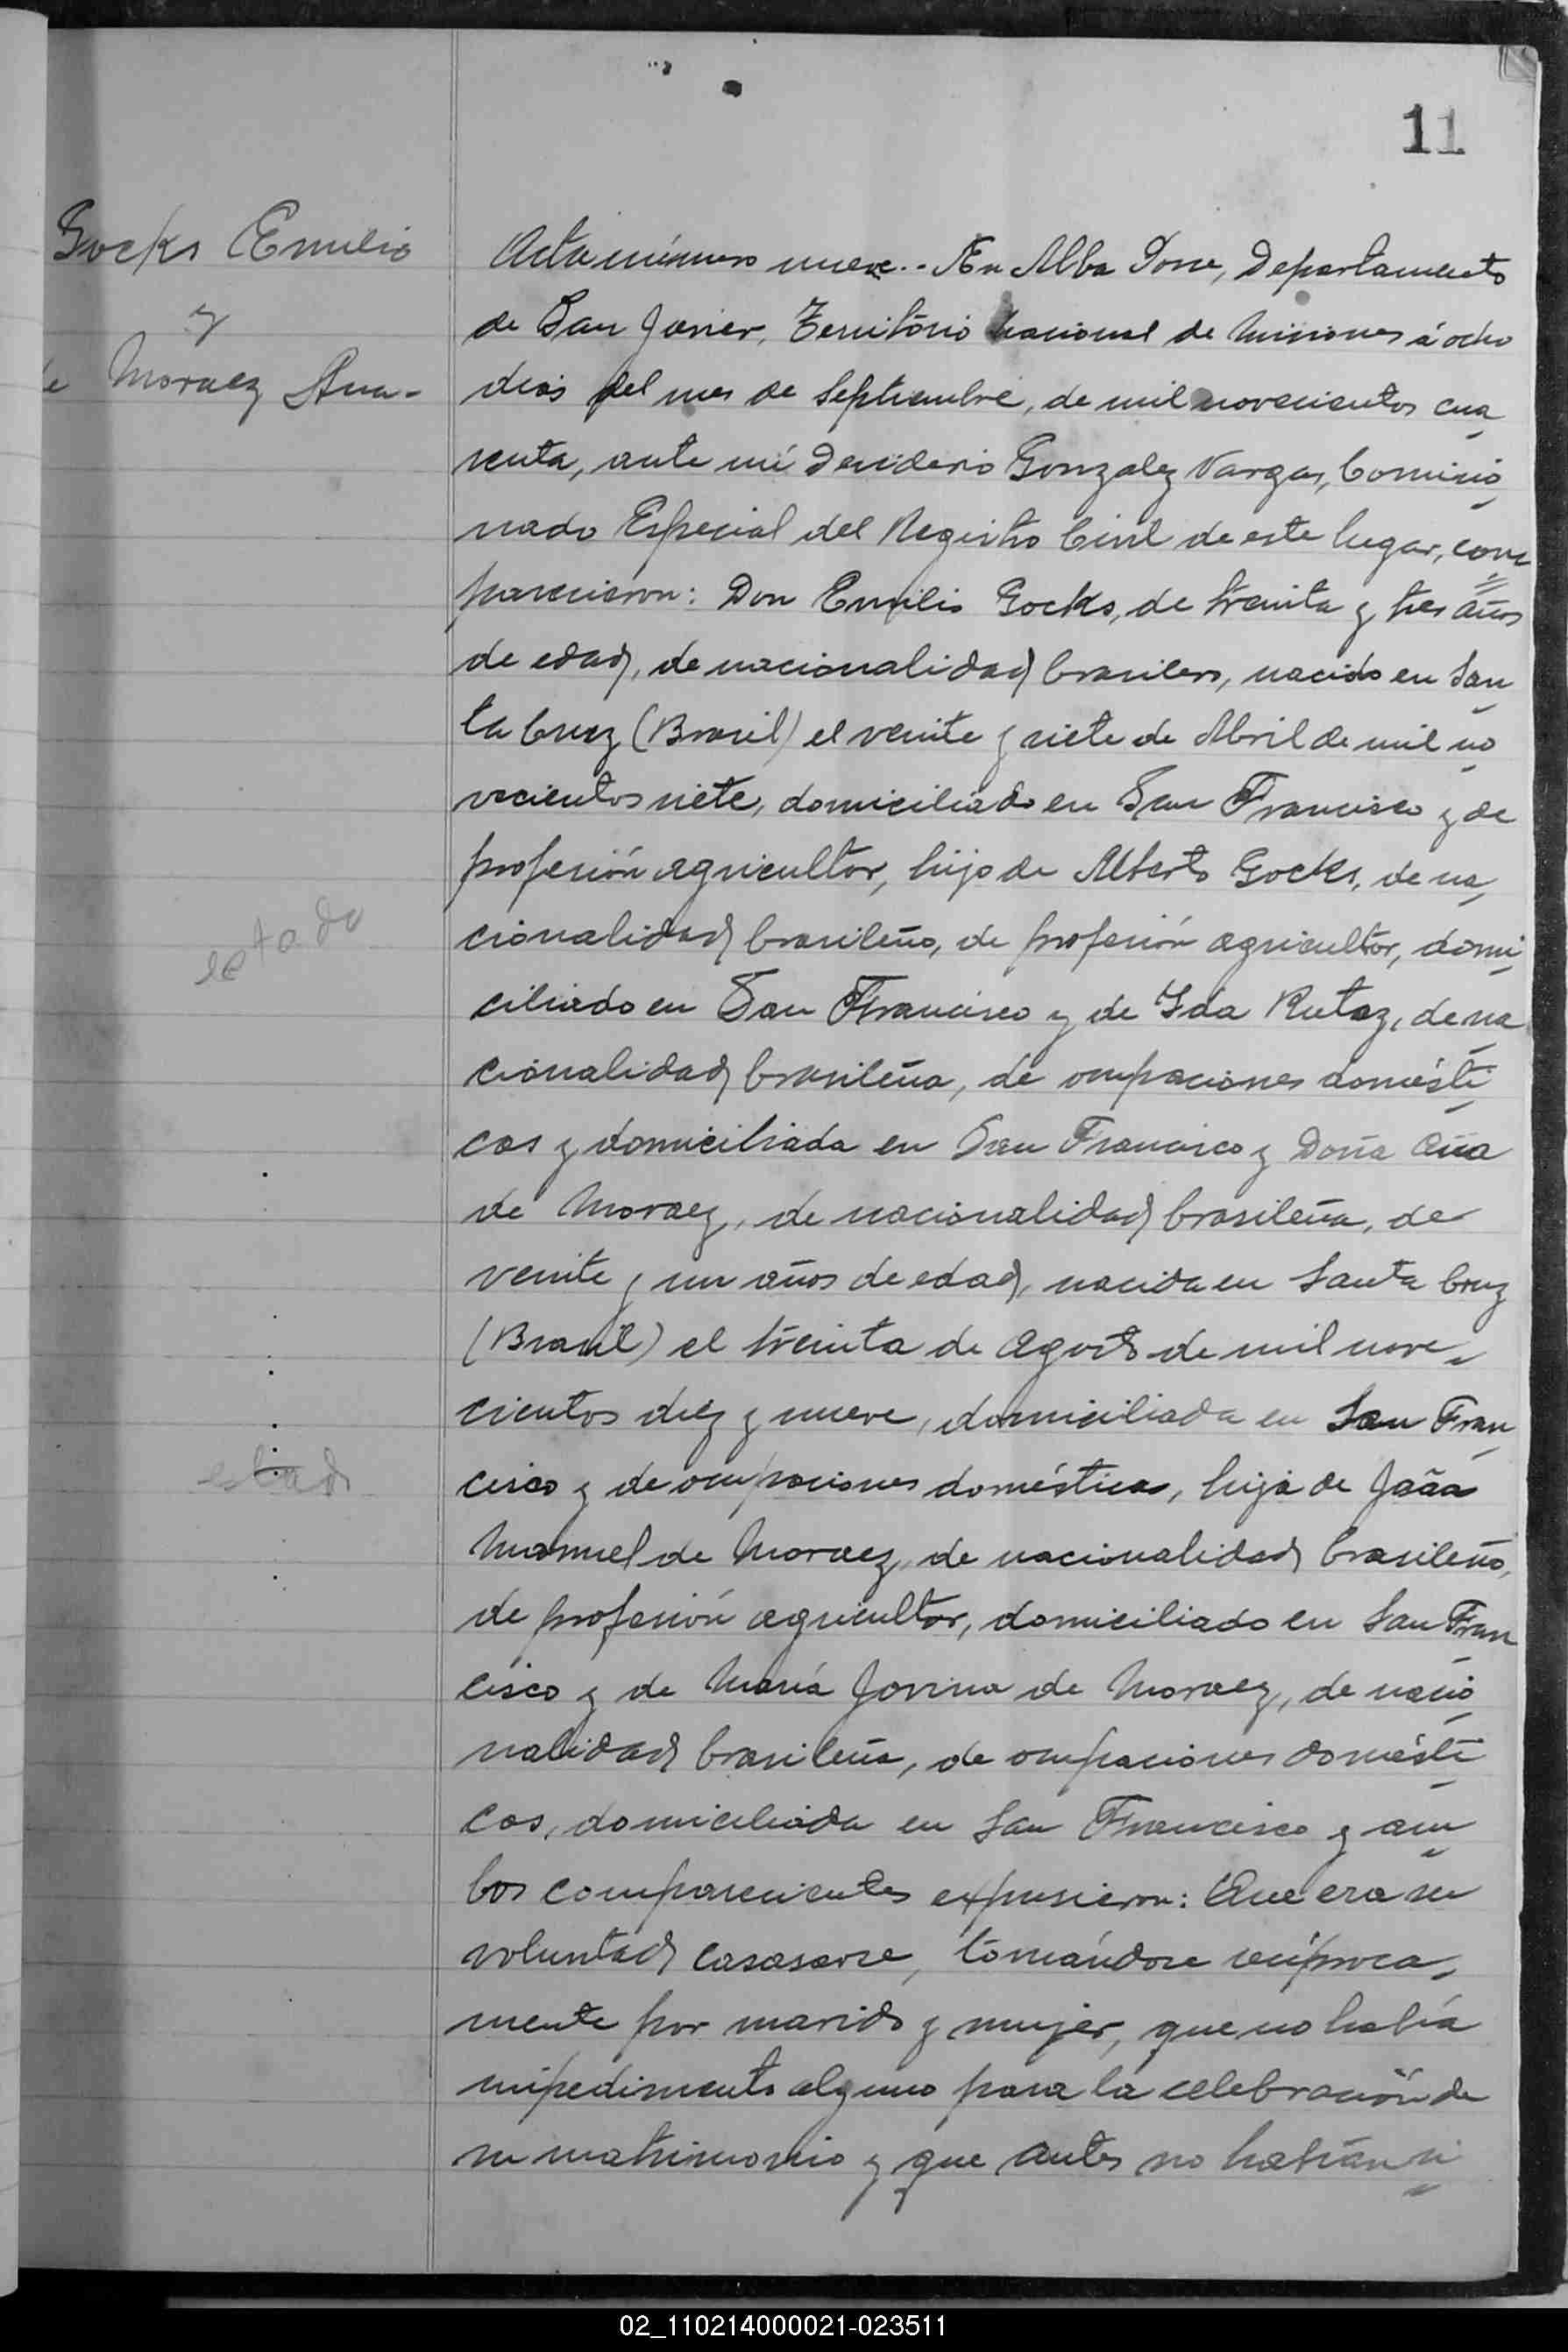 11
Gocks Emilio
y
de Moraez Ana-
Acta número nueve.- En Alba Posse, Departamento
de San Javier, Territorio Nacional de Misiones á ocho
dias del mes de Septiembre, de mil novecientos cua
renta, ante mi Desiderio Gonzalez Vargas, Comisio
nado Especial del Registro Civil de este lugar, com
parecieron: Don Emilio Gocks, de treinta y tres años
de edad, de nacionalidad brasilero, nacido en San
ta Cruz (Brasil) el veinte y siete de Abril de mil no
vecientos siete, domiciliado en San Francisco y de
profesión agricultor, hijo de Alberto Gocks, de na
cionalidad brasileño, de profesión agricultor, domi
estado
ciliado en San Francisco y de Ida Rutaz, de na
cionalidad brasileña, de ocupaciones domésti
cas y domiciliada en San Francisco y Doña Ana
de Moraez, de nacionalidad brasileña, de
veinte y un años de edad, nacida en Santa Cruz
(Brasil) el treinta de Agosto de mil nove
cientos diez y nueve, domiciliada en San Fran
estado
cisco y de ocupaciones domésticas, hija de
Manuel de Moraez, de nacionalidad brasileño,
de profesión agricultor, domiciliado en San Fran
cisco y de María Jovina de Moraez, de nacio
nalidad brasileña, de ocupaciones domésti
cas, domiciliada en San Francisco y am
bos comparecientes expusieron: Que era su
voluntad casasarse, tomándose recíproca
mente por marido y mujer, que no había
impedimento alguno para la celebración de
su matrimonio y que antes no habían si
02_110214000021-023511